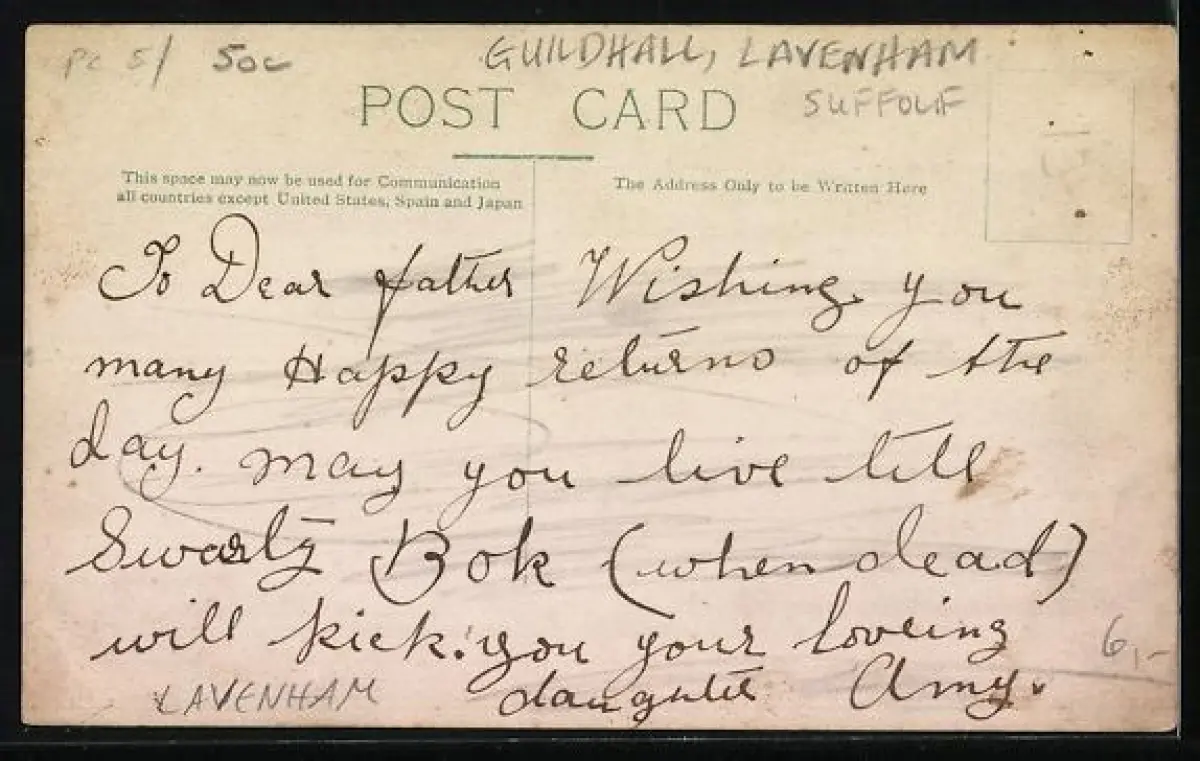 PC 5/ 50c GUILDHALL, LAVENHAM
SUFFOLK
POST CARD
This space may now be used for Communication
all countries except United States, Spain and Japan
The Address Only to be Written Here
To Dear father Wishing you
many Happy returns of the
day. may you live till
Swartz Bok (when dead)
will kick you your loveing
daughter Amy.
LAVENHAM
6,-